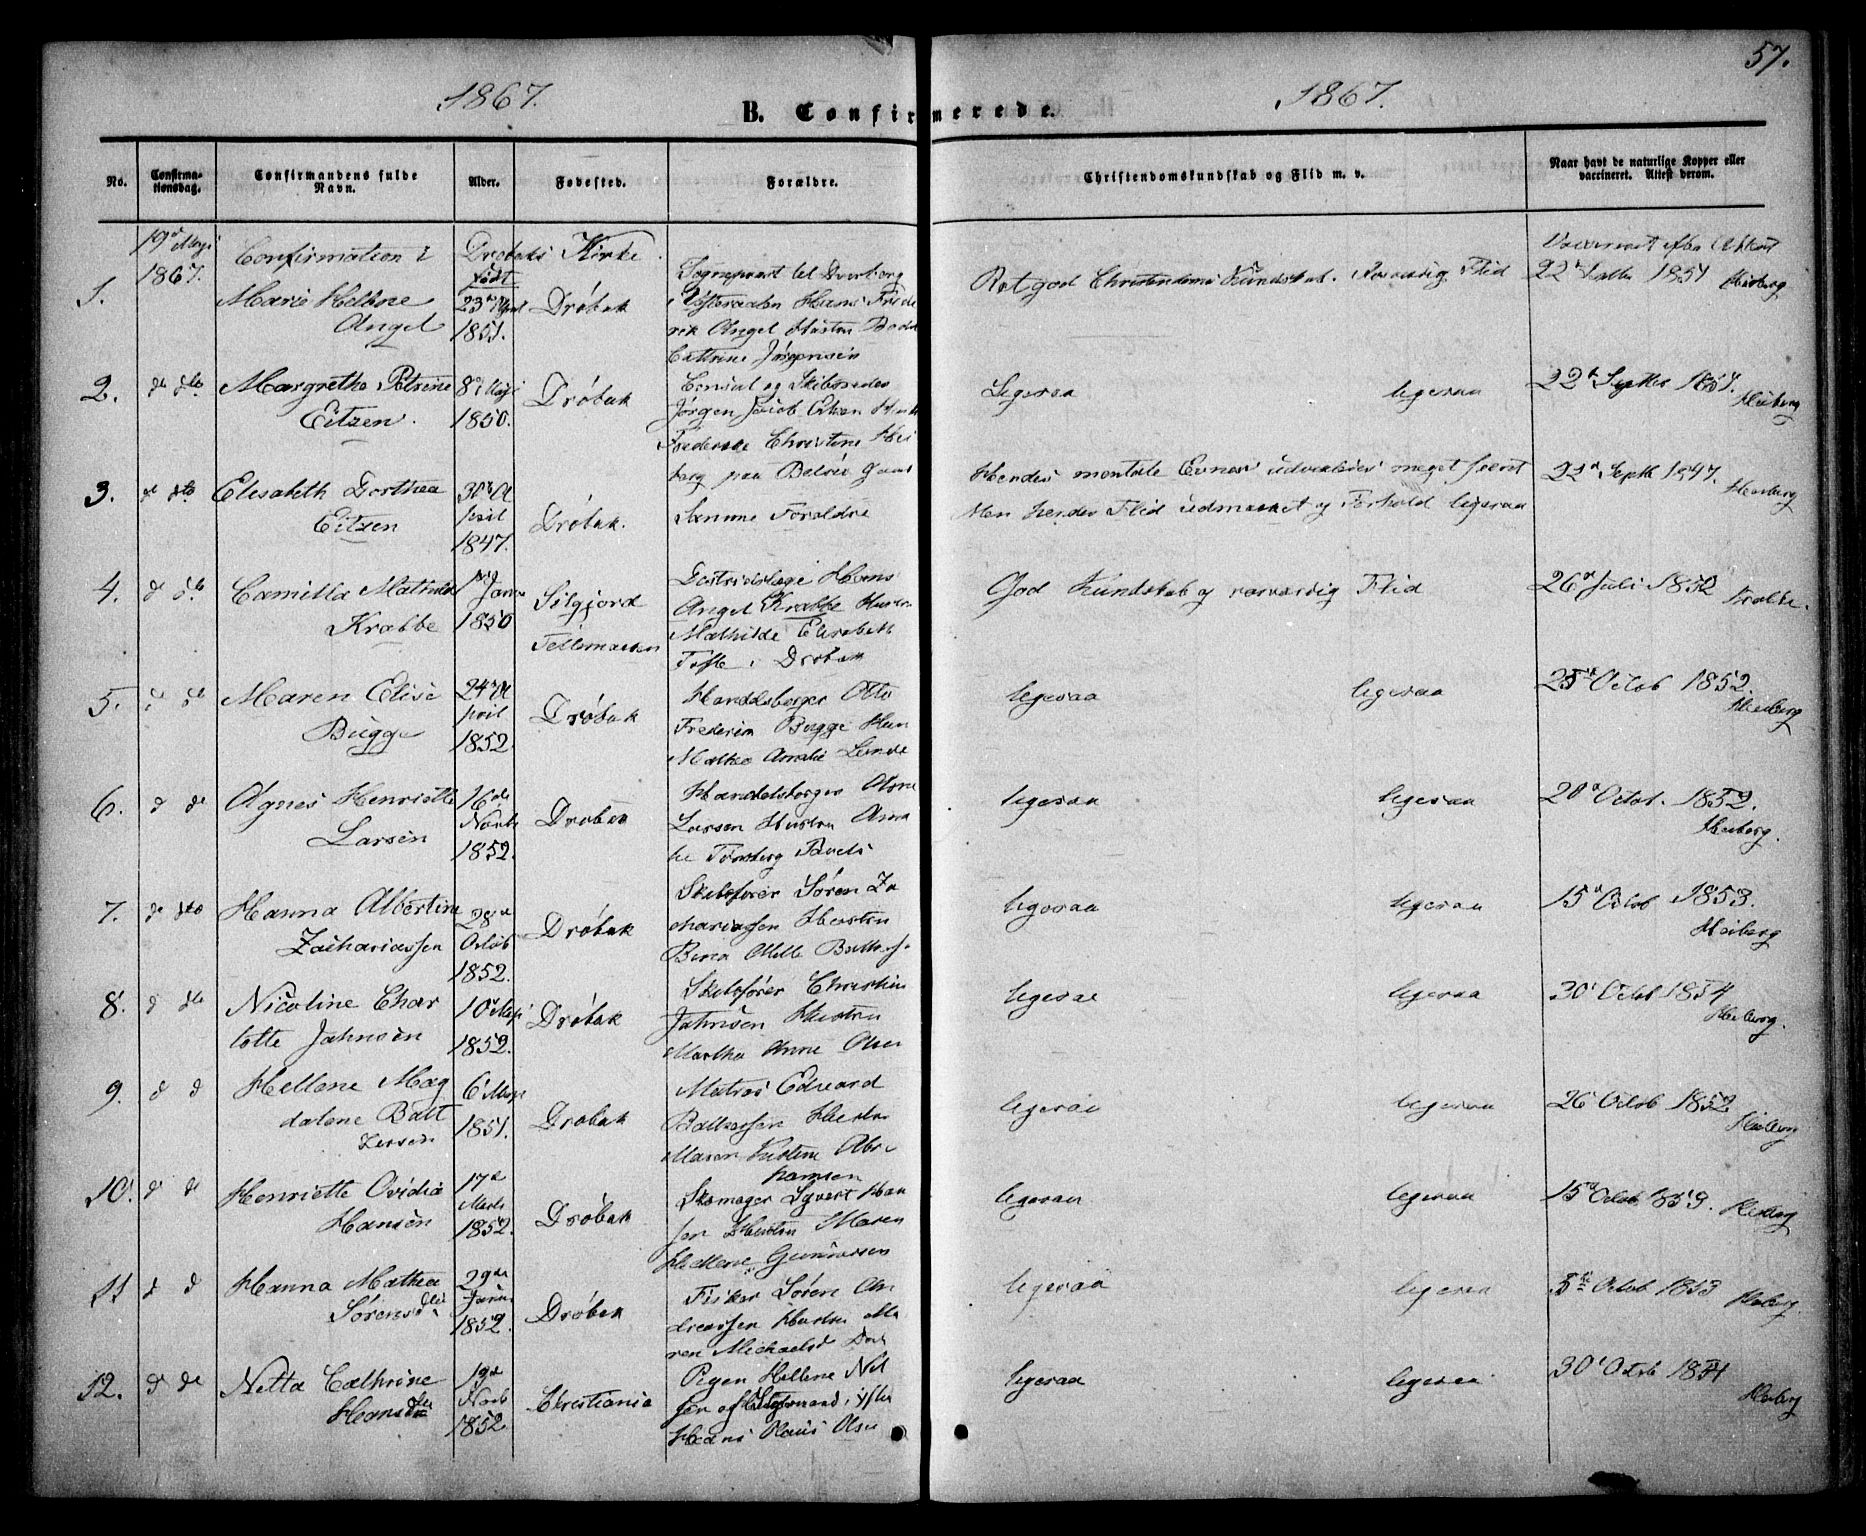 57.
1867. 1867.
B. Confirmerede.
No. Confirma-tionsdag. Confirmandens fulde Navn. Alder. Fødested. Forældre. Christendomskundskab og Flid m. v. Naar havt de naturlige Kopper eller vaccineret. Attest derom.
19de Maji 1867. Confirmation i Drøbaks Kirke
født
1. Marie Hellene Angel 23de April 1851. Drøbak
Sogneprest til Dverberg
i Vesteraalen Hans Frede
rik Angel Hustru
Cathrine Jørgensen
Retgod Christendoms Kundskab. Rosværdig Flid
1851 Heiberg
2. de dto Margrethe Petrine Eitzen. 8de Maji 1850. Drøbak
Consul og Skibsreder
Jørgen Jacob Eitzen
Frederikke Christine Hei
berg paa
Ligesaa ligesaa
22de Septbr 1851. Heiberg
3. d dto Elisabeth Dorthea Eitzen 30te April 1847. Drøbak.
Samme Forældre
Hendes mentale Evner udvikledes meget seent
Men hendes Flid udmærket og Forhold ligesaa
21de Septb 1847. Heiberg
4. d dto Camilla Mathilde Krabbe 1ste Janu 1850 Silgjord Tellemarken
Distriktslæge Hans
Angel Krabbe Hustru
Mathilde Elisabeth
Tofte i Drøbak
God Kundskab og rosværdig Flid
26de Juli 1850 Krabbe.
5. d dto Maren Elise Bugge 24de April 1852. Drøbak
Handelsborger Otto
Frederik Bugge Hun
Mathea Amalie Lunde
ligesaa ligesaa
25de Octob 1852. Heiberg
6. d de Agnes Henriette Larsen 16de Novb 1852. Drøbak
Handelsborger
Larsen Hustru Anna
ligesaa ligesaa
20de Octob. 1852. Heiberg.
7. de dto Hanna Albertine Zachariassen 28de Octob 1852. Drøbak
Skibsfører Søren Za
chariassen Hustru
ligesaa ligesaa
15de Octob 1853. Heiberg
8. d dto Nicoline Char
lotte Jahnsen 10de Maji 1852. Drøbak
Skibsfører Christian
Jahnsen Hustru
Martha Anne Olsen
ligesaa ligesaa
30te Octob 1854 Heiberg.
9. d d Hellene Mag
dalene Balt
zersen 6te Maji 1851. Drøbak
Matros Edvard
Baltzersen Hustru
Maren Kirstine Abra
hamsen
ligesaa ligesaa
26 Octob 1852 Heiberg
10. d de Henriette Ovidia Hansen 17de Marts 1852. Drøbak
Skomager Syvert Han
sen Hustru Maren
Hellene Gunnersen
ligesaa ligesaa
15de Octob 1853. Heiberg
11 d d Hanna Mathea Sørensdtr 29de Janu 1852. Drøbak
Fisker Søren An
dreassen Hustru Ma
ren Michaelsd
ligesaa ligesaa
5te Octob 1853 Heiberg.
12. d de Netta Cathrine Hansdtr 19de Novb 1852. Christiania
Pigen Hellene Nil
sen
Hans Olsen
ligesaa ligesaa
30te Octob 1854 Heiberg